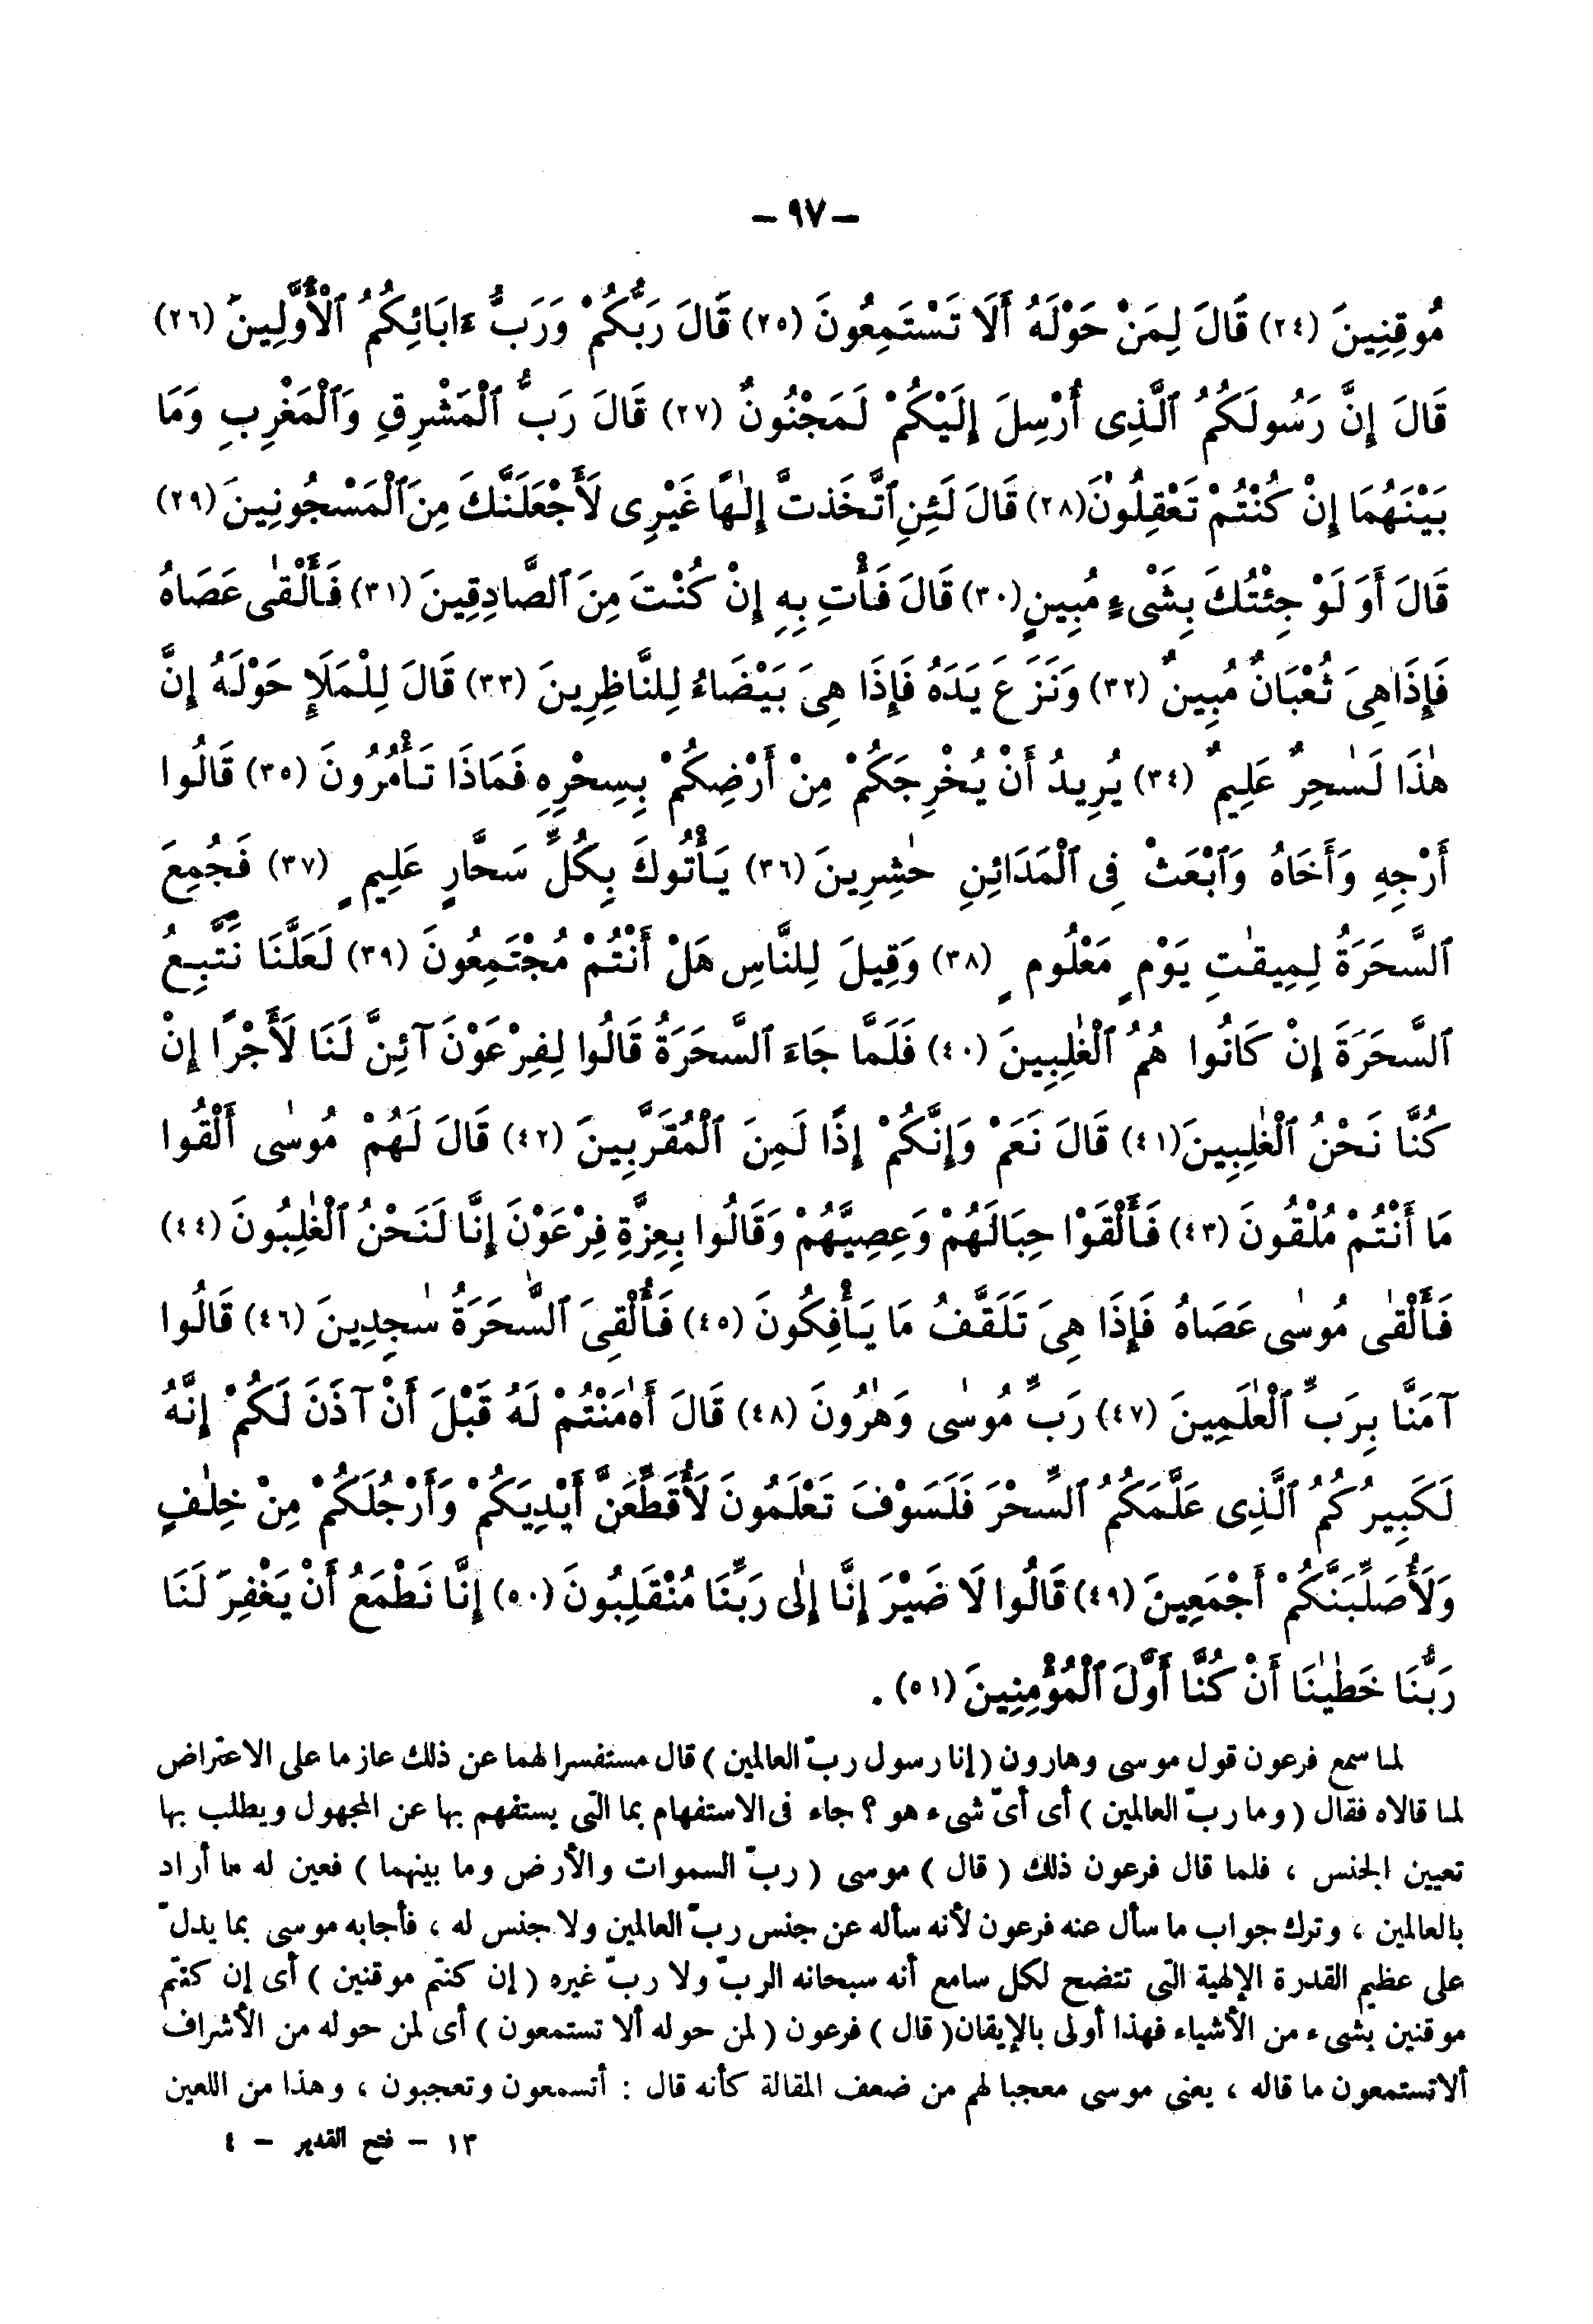 — ٩٧ —
مُوقِنِينَ (٢٤) قَالَ لِمَنْ حَوْلَهُ أَلَا تَسْتَمِعُونَ (٢٥) قَالَ رَبُّكُمْ وَرَبُّ ءَابَائِكُمُ ٱلْأَوَّلِينَ (٢٦)
قَالَ إِنَّ رَسُولَكُمُ ٱلَّذِى أُرْسِلَ إِلَيْكُمْ لَمَجْنُونٌ (٢٧) قَالَ رَبُّ ٱلْمَشْرِقِ وَٱلْمَغْرِبِ وَمَا
بَيْنَهُمَا إِنْ كُنْتُمْ تَعْقِلُونَ (٢٨) قَالَ لَئِنِ ٱتَّخَذتَّ إِلٰهًا غَيْرِى لَأَجْعَلَنَّكَ مِنَ ٱلْمَسْجُونِينَ (٢٩)
قَالَ أَوَ لَوْ جِئْتُكَ بِشَىْءٍ مُبِينٍ (٣٠) قَالَ فَأْتِ بِهِ إِنْ كُنْتَ مِنَ ٱلصَّادِقِينَ (٣١) فَأَلْقٰى عَصَاهُ
فَإِذَا هِىَ ثُعْبَانٌ مُبِينٌ (٣٢) وَنَزَعَ يَدَهُ فَإِذَا هِىَ بَيْضَاءُ لِلنَّاظِرِينَ (٣٣) قَالَ لِلْمَلَإِ حَوْلَهُ إِنَّ
هٰذَا لَسٰحِرٌ عَلِيمٌ (٣٤) يُرِيدُ أَنْ يُخْرِجَكُمْ مِنْ أَرْضِكُمْ بِسِحْرِهِ فَمَاذَا تَأْمُرُونَ (٣٥) قَالُوا
أَرْجِهِ وَأَخَاهُ وَٱبْعَثْ فِى ٱلْمَدَائِنِ حٰشِرِينَ (٣٦) يَأْتُوكَ بِكُلِّ سَحَّارٍ عَلِيمٍ (٣٧) فَجُمِعَ
ٱلسَّحَرَةُ لِمِيقٰتِ يَوْمٍ مَعْلُومٍ (٣٨) وَقِيلَ لِلنَّاسِ هَلْ أَنْتُمْ مُجْتَمِعُونَ (٣٩) لَعَلَّنَا نَتَّبِعُ
ٱلسَّحَرَةَ إِنْ كَانُوا هُمُ ٱلْغٰلِبِينَ (٤٠) فَلَمَّا جَاءَ ٱلسَّحَرَةُ قَالُوا لِفِرْعَوْنَ آئِنَّ لَنَا لَأَجْرًا إِنْ
كُنَّا نَحْنُ ٱلْغٰلِبِينَ (٤١) قَالَ نَعَمْ وَإِنَّكُمْ إِذًا لَمِنَ ٱلْمُقَرَّبِينَ (٤٢) قَالَ لَهُمْ مُوسٰى أَلْقُوا
مَا أَنْتُمْ مُلْقُونَ (٤٣) فَأَلْقَوْا حِبَالَهُمْ وَعِصِيَّهُمْ وَقَالُوا بِعِزَّةِ فِرْعَوْنَ إِنَّا لَنَحْنُ ٱلْغٰلِبُونَ (٤٤)
فَأَلْقٰى مُوسٰى عَصَاهُ فَإِذَا هِىَ تَلَقَّفُ مَا يَأْفِكُونَ (٤٥) فَأُلْقِىَ ٱلسَّحَرَةُ سٰجِدِينَ (٤٦) قَالُوا
آمَنَّا بِرَبِّ ٱلْعٰلَمِينَ (٤٧) رَبِّ مُوسٰى وَهٰرُونَ (٤٨) قَالَ أَءٰمَنْتُمْ لَهُ قَبْلَ أَنْ آذَنَ لَكُمْ إِنَّهُ
لَكَبِيرُكُمُ ٱلَّذِى عَلَّمَكُمُ ٱلسِّحْرَ فَلَسَوْفَ تَعْلَمُونَ لَأُقَطِّعَنَّ أَيْدِيَكُمْ وَأَرْجُلَكُمْ مِنْ خِلٰفٍ
وَلَأُصَلِّبَنَّكُمْ أَجْمَعِينَ (٤٩) قَالُوا لَا ضَيْرَ إِنَّا إِلٰى رَبِّنَا مُنْقَلِبُونَ (٥٠) إِنَّا نَطْمَعُ أَنْ يَغْفِرَ لَنَا
رَبُّنَا خَطٰيٰنَا أَنْ كُنَّا أَوَّلَ ٱلْمُؤْمِنِينَ (٥١) .
لما سمع فرعون قول موسى وهارون (إنا رسول ربّ العالمين) قال مستفسرا لهما عن ذلك عازما على الاعتراض
لما قالاه فقال (وما ربّ العالمين) أى أىّ شىء هو ؟ جاء فى الاستفهام بما التى يستفهم بها عن المجهول ويطلب بها
تعيين الجنس ، فلما قال فرعون ذلك (قال) موسى (ربّ السموات والأرض وما بينهما) فعين له ما أراد
بالعالمين ، وترك جواب ما سأل عنه فرعون لأنه سأله عن جنس ربّ العالمين ولا جنس له ، فأجابه موسى بما يدلّ
على عظيم القدرة الإلهية التى تتضح لكل سامع أنه سبحانه الربّ ولا ربّ غيره (إن كنتم موقنين) أى إن كنتم
موقنين بشىء من الأشياء فهذا أولى بالإيقان (قال) فرعون (لمن حوله ألا تستمعون) أى لمن حوله من الأشراف
ألا تستمعون ما قاله ، يعنى موسى معجبا لهم من ضعف المقالة كأنه قال : أتسمعون وتعجبون ، وهذا من اللعين
١٣ — فتح القدير — ٤